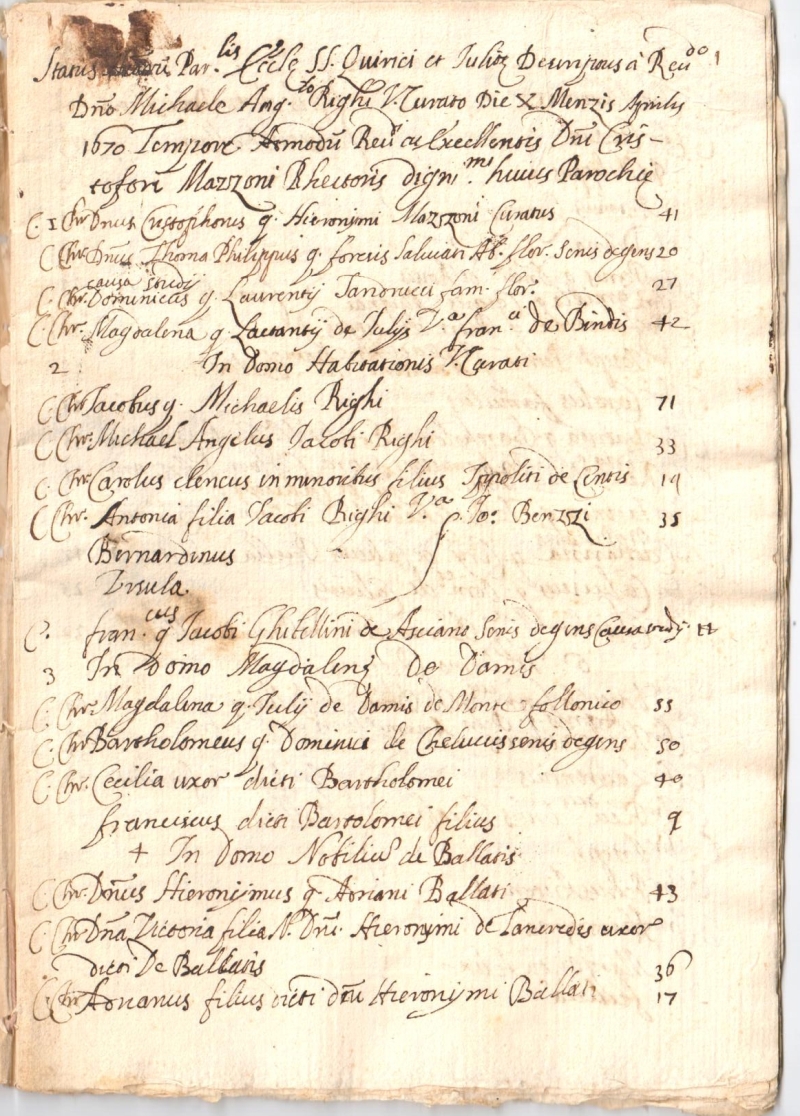 Status Par.lis Eccle SS. Quirici et Julitę Descriptus à Reudo 1
Dño Michaele Ang.lo Righi V. Curato Die X Menzis Aprilis
1670 Tempore Admodũ Reud ac Excellentis Dñi Cris-
tofori Mazzoni Rhectoris digni.mi huius Parochię
C. 1 Chr. Dnus Cristophorus q. Hieronymi Mazzoni Curatus 41
C Chr. Dnus Thoma Philippus q. Salviati flor. Senis degens 20
causa studij
C. Chr. Dominicus q. Laurentij Tandrucci fam. flor. 27
C Chr. Magdalena q. Lactantij de Julijs V.a fran.ci de Bindis 42
2 In Domo Habitationis V. Curati
C Chr. Jacobus q. Michaelis Righi 71
C Chr. Michael Angelus Jacobi Righi 33
C. Chr. Carolus clericus in minoribus filius Ippoliti de Centis 19
C Chr. Antonia filia Jacobi Righi V.a Jo. Benzzi 35
Bernardinus
Ursula
C. fran.cus q Jacobi Ghibellini de Asciano Senis degens causa studij 22
3 In Domo Magdalenę De Damis
C. Chr. Magdalena q. Julij de Damis de Monte follonico 55
C. Chr Bartholomeus q. Dominici de Chelucis senis degens 50
C. Chr. Cecilia uxor dicti Bartholomei 40
franciscus dicti Bartolomei filius 9
4 In Domo Nobiliũ de Ballatis
C Chr. Dñus Hieronijmus q. Adriani Ballati 43
C. Chr Dña Victoria filia N. Dñi. Hieronijmi de Tancredis uxor
dicti De Ballatis 36
C. Chr Adrianus filius dicti Dñi Hieronijmi Ballati 17